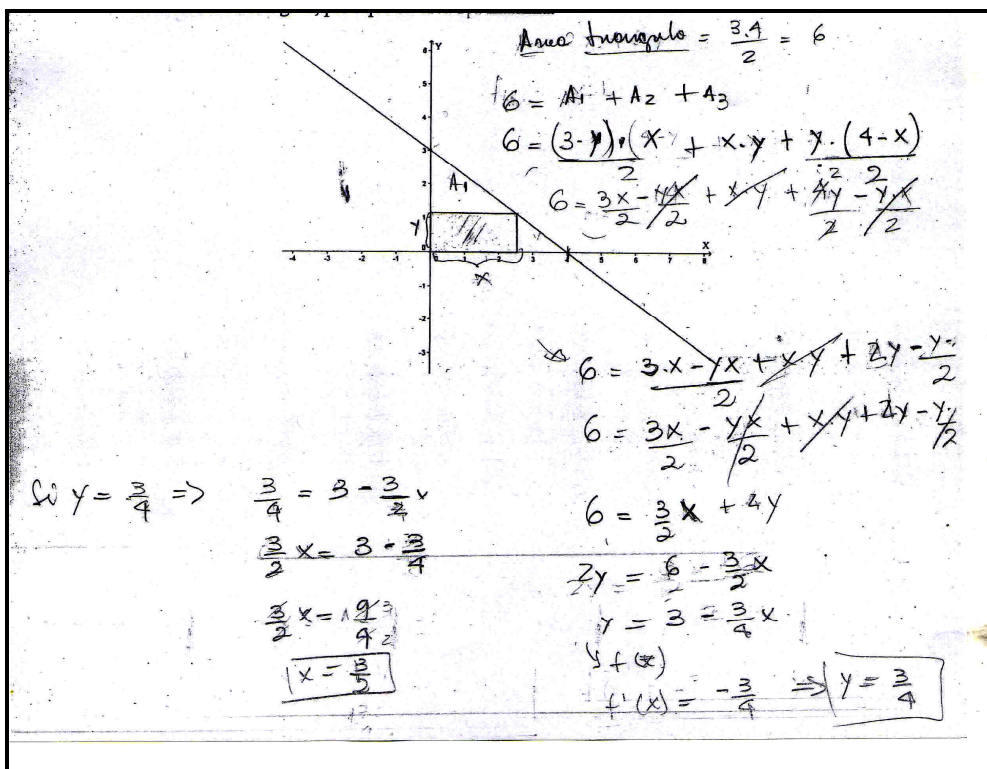 Area triangulo = 3.4/2 = 6
6 = A1 + A2 + A3
6 = (3-y).(x/2 + x.y + y.(4-x)/2
6 = 3x/2 - yx/2 + x.y + 4y/2 - y.x/2
Y
6
5
4
3
2
1
0
-1
-2
-3
A1
Y
x
X
-4 -3 -2 -1 0 1 2 3 4 5 6 7 8
6 = 3.x-yx/2 + x.y + 2y - y./2
6 = 3x/2 - yx/2 + x.y + 2y - y/2
6 = 3/2 x + 2y
2y = 6 - 3/2 x
y = 3 - 3/4 x
y f(x)
f'(x) = -3/4 => y = 3/4
Si y = 3/4 => 3/4 = 3 - 3/2 x
3/2 x = 3 - 3/4
3/2 x = 9/4 3 2
x = 3/2